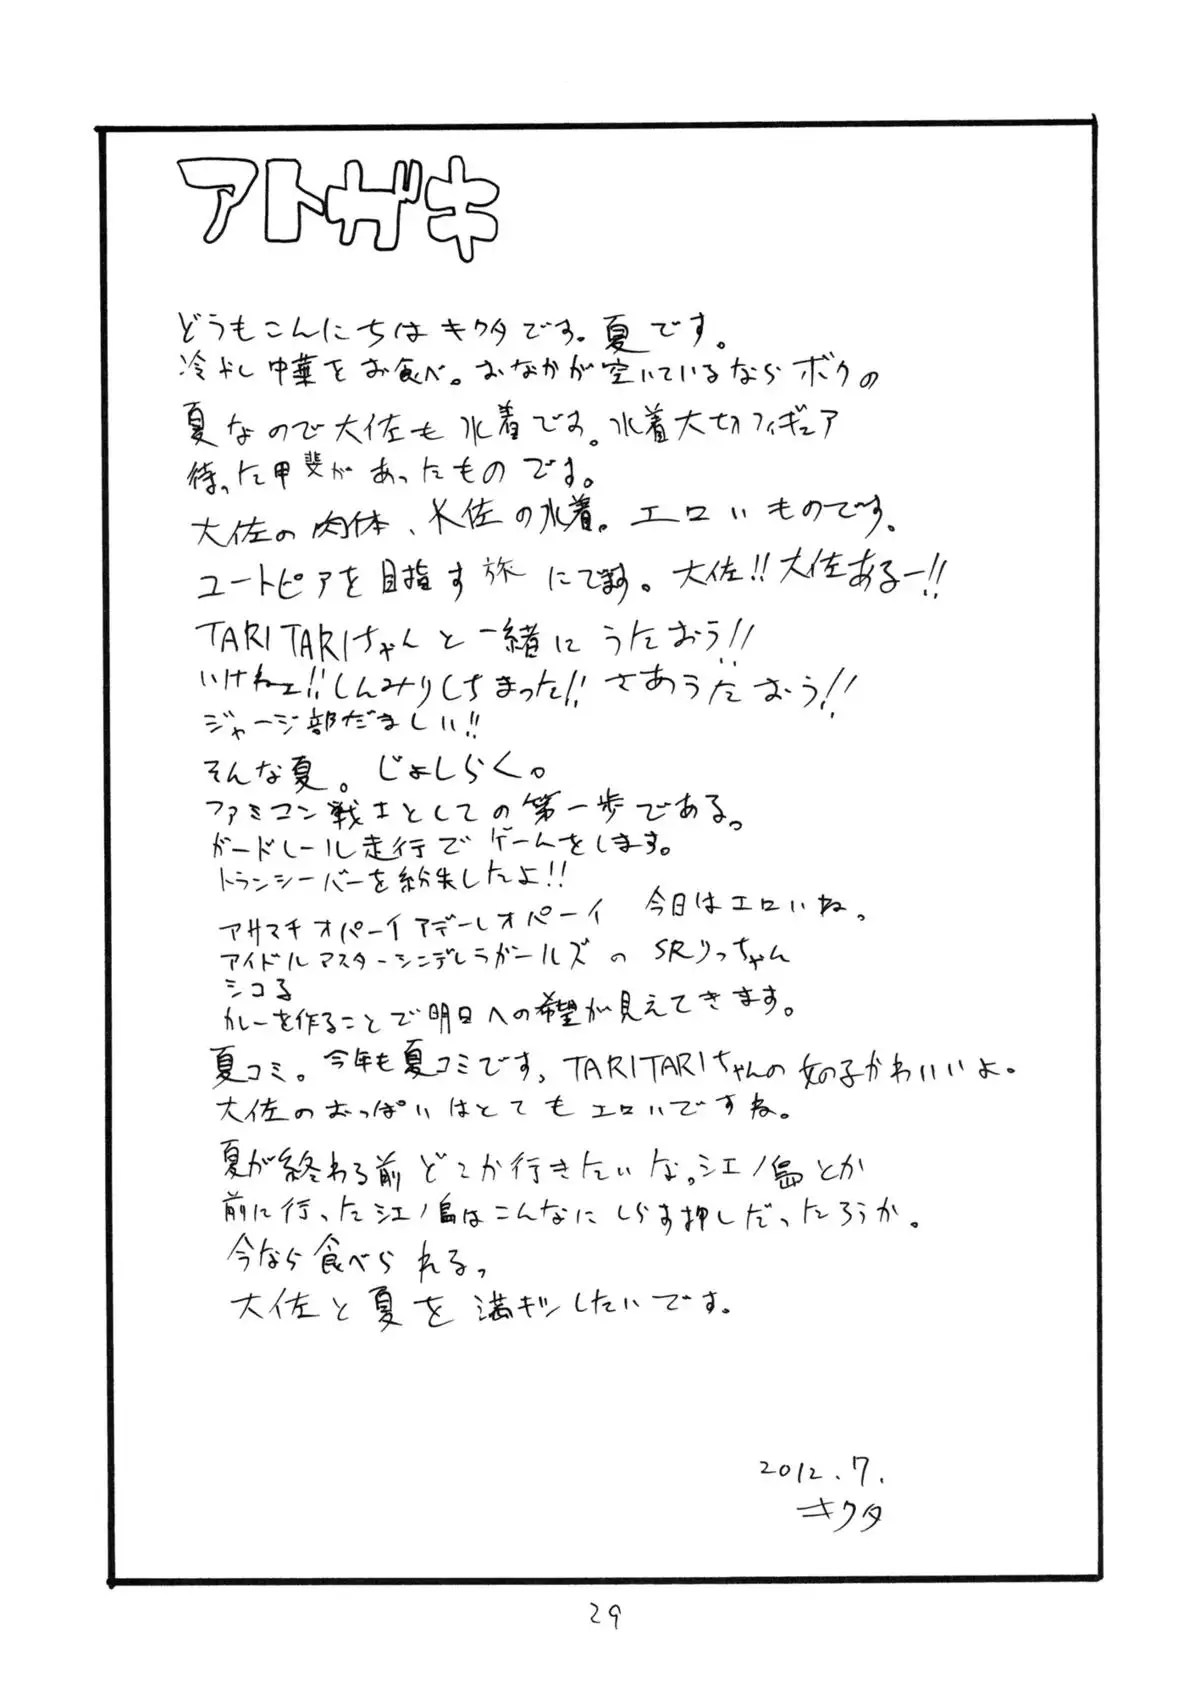 アトガキ
どうもこんにちはキクタです。夏です。
冷やし中華をお食べ。おなかが空いているならボクの
夏なので大佐も水着です。水着大佐フィギュア
待った甲斐があったものです。
大佐の肉体、大佐の水着。エロいものです。
ユートピアを目指す旅にでます。大佐!!大佐あるー!!
TARITARIちゃんと一緒にうたおう!!
いけねェ!!しんみりしちまった!!さあうたおう!!
ジャージ部だましい!!
そんな夏。じょしらく。
ファミコン戦士としての第一歩である。
ガードレール走行でゲームをします。
トランシーバーを紛失したよ!!
アサマチオパーイアデーレオパーイ 今日はエロいね。
アイドルマスターシンデレラガールズのSRりっちゃん
シコる
カレーを作ることで明日への希望が見えてきます。
夏コミ。今年も夏コミです、TARITARIちゃんの女の子かわいいよ。
大佐のおっぱいはとてもエロいですね。
夏が終わる前どこか行きたいな。江ノ島とか
前に行った江ノ島はこんなにしらす押しだったろうか。
今なら食べられる。
大佐と夏を満キツしたいです。
2012.7.
キクタ
29